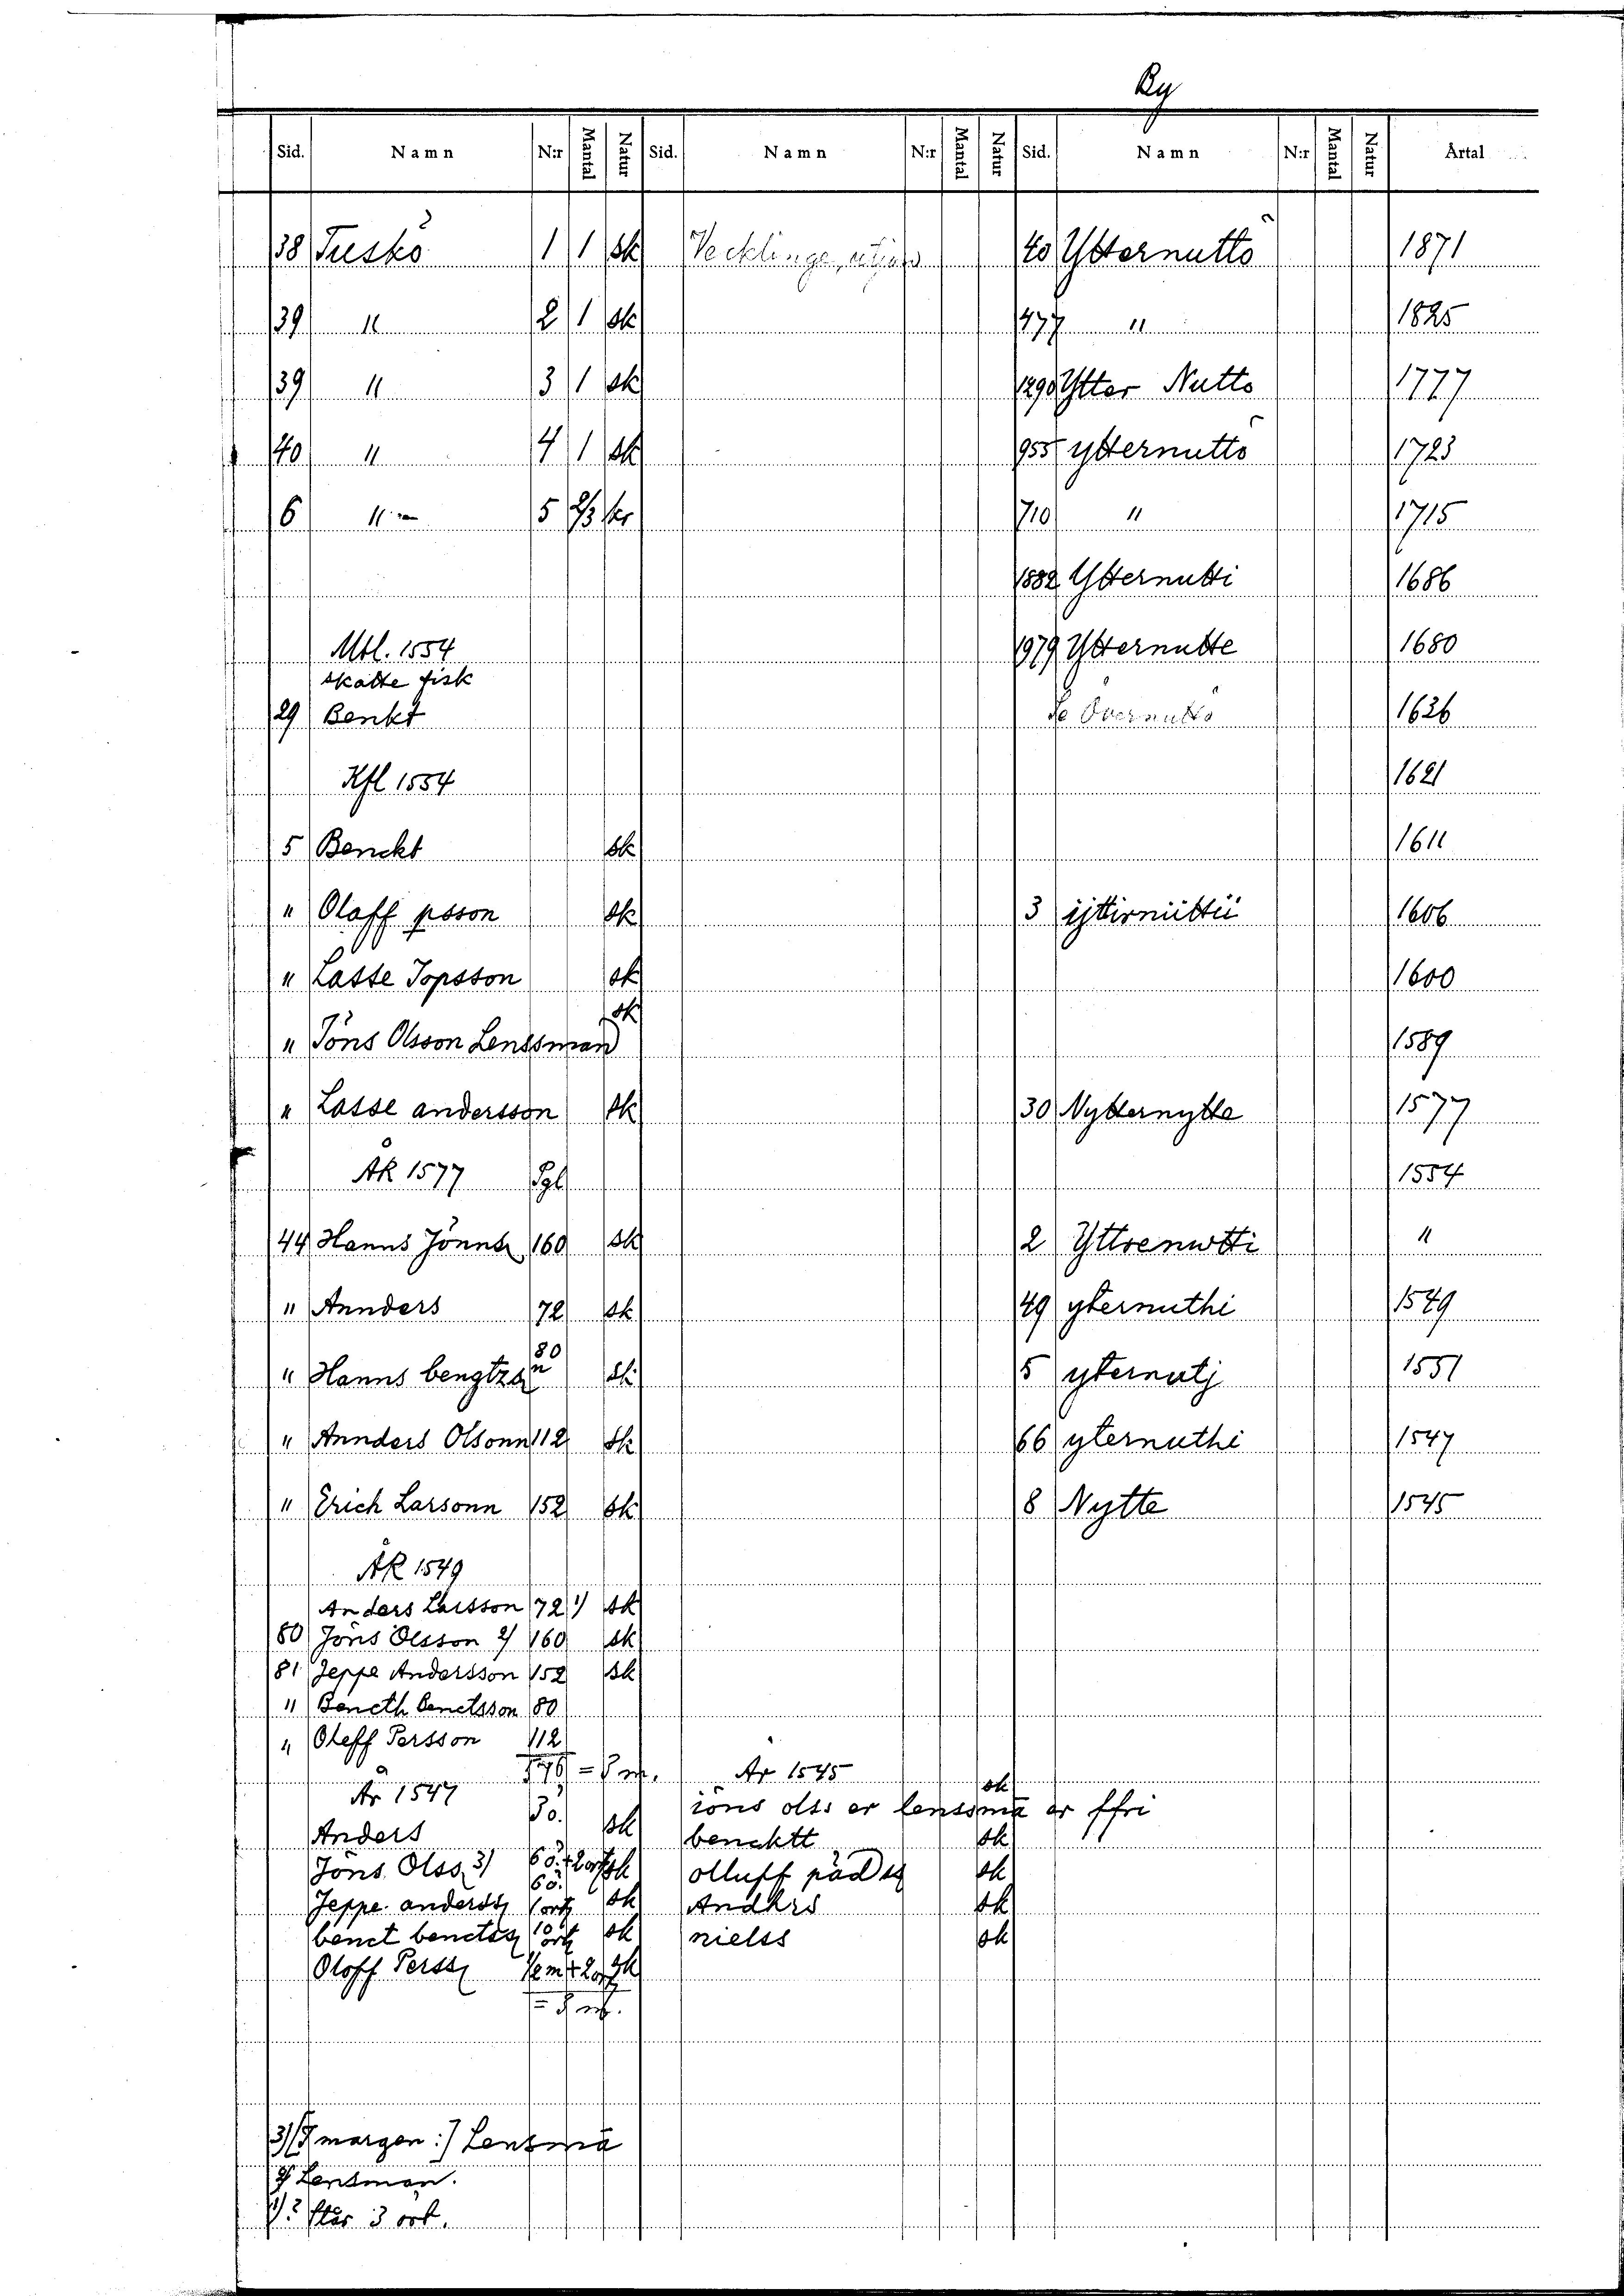 By
Sid. Namn N:r Mantal Natur Sid. Namn N:r Mantal Natur Sid. Namn N:r Mantal Natur Årtal
38 Tuskö 1 1 sk Vecklinge, utjord 40 Ytternuttö 1871
39 " 2 1 sk 477 " 1825
39 " 3 1 sk 1290 Ytter Nutto 1777
40 " 4 1 sk 955 ytternuttö 1723
6 " 5 2/3 kr 710 " 1715
1882 Ytternutti 1686
Mtl. 1554 1979 Ytternutte 1680
skatte fisk
29 Benkt Se Övernuttö 1626
Kfl 1554 1621
5 Benckt sk 1611
" Olaff psson sk 3 ÿttirnüttü 1606
" Lasse Jopsson sk 1600
" Jöns Olsson Lenssman sk 1589
" Lasse andersson sk 30 Nytternytte 1577
ÅR 1577 Pgl 1554
44 Hanns Jönns 160 sk 2 Yttrenwtti "
" Annders 72 sk 49 yternuthi 1549
" Hanns bengtzsn 80 sk 5 yternutj 1551
" Annders Olsonn 112 sk 66 yternuthi 1547
" Erich Larsonn 152 sk 8 Nytte 1545
ÅR 1549
Anders Larsson 72 1) sk
80 Jöns Olsson 2) 160 sk
81 Jeppe Andersson 152 sk
" Bencth benctsson 80
" Oleff Persson 112
576 = 8 m. År 1545
År 1547 sk
jöns olss er lenssmā er ffri
Anders 3ö. sk bencktt sk
Jöns Olss 3) 6ö. + 2 ort sk olluff päds sk
Jeppe anderss 6ö. 1 ort sk Anders sk
benct benctss 10 ort sk nielss sk
Oloff Perss 1/2 m + 2 ort sk
= 8 m.
3) [I margen:] Lensmā
2) Lensman.
1) ? står 3 ort.